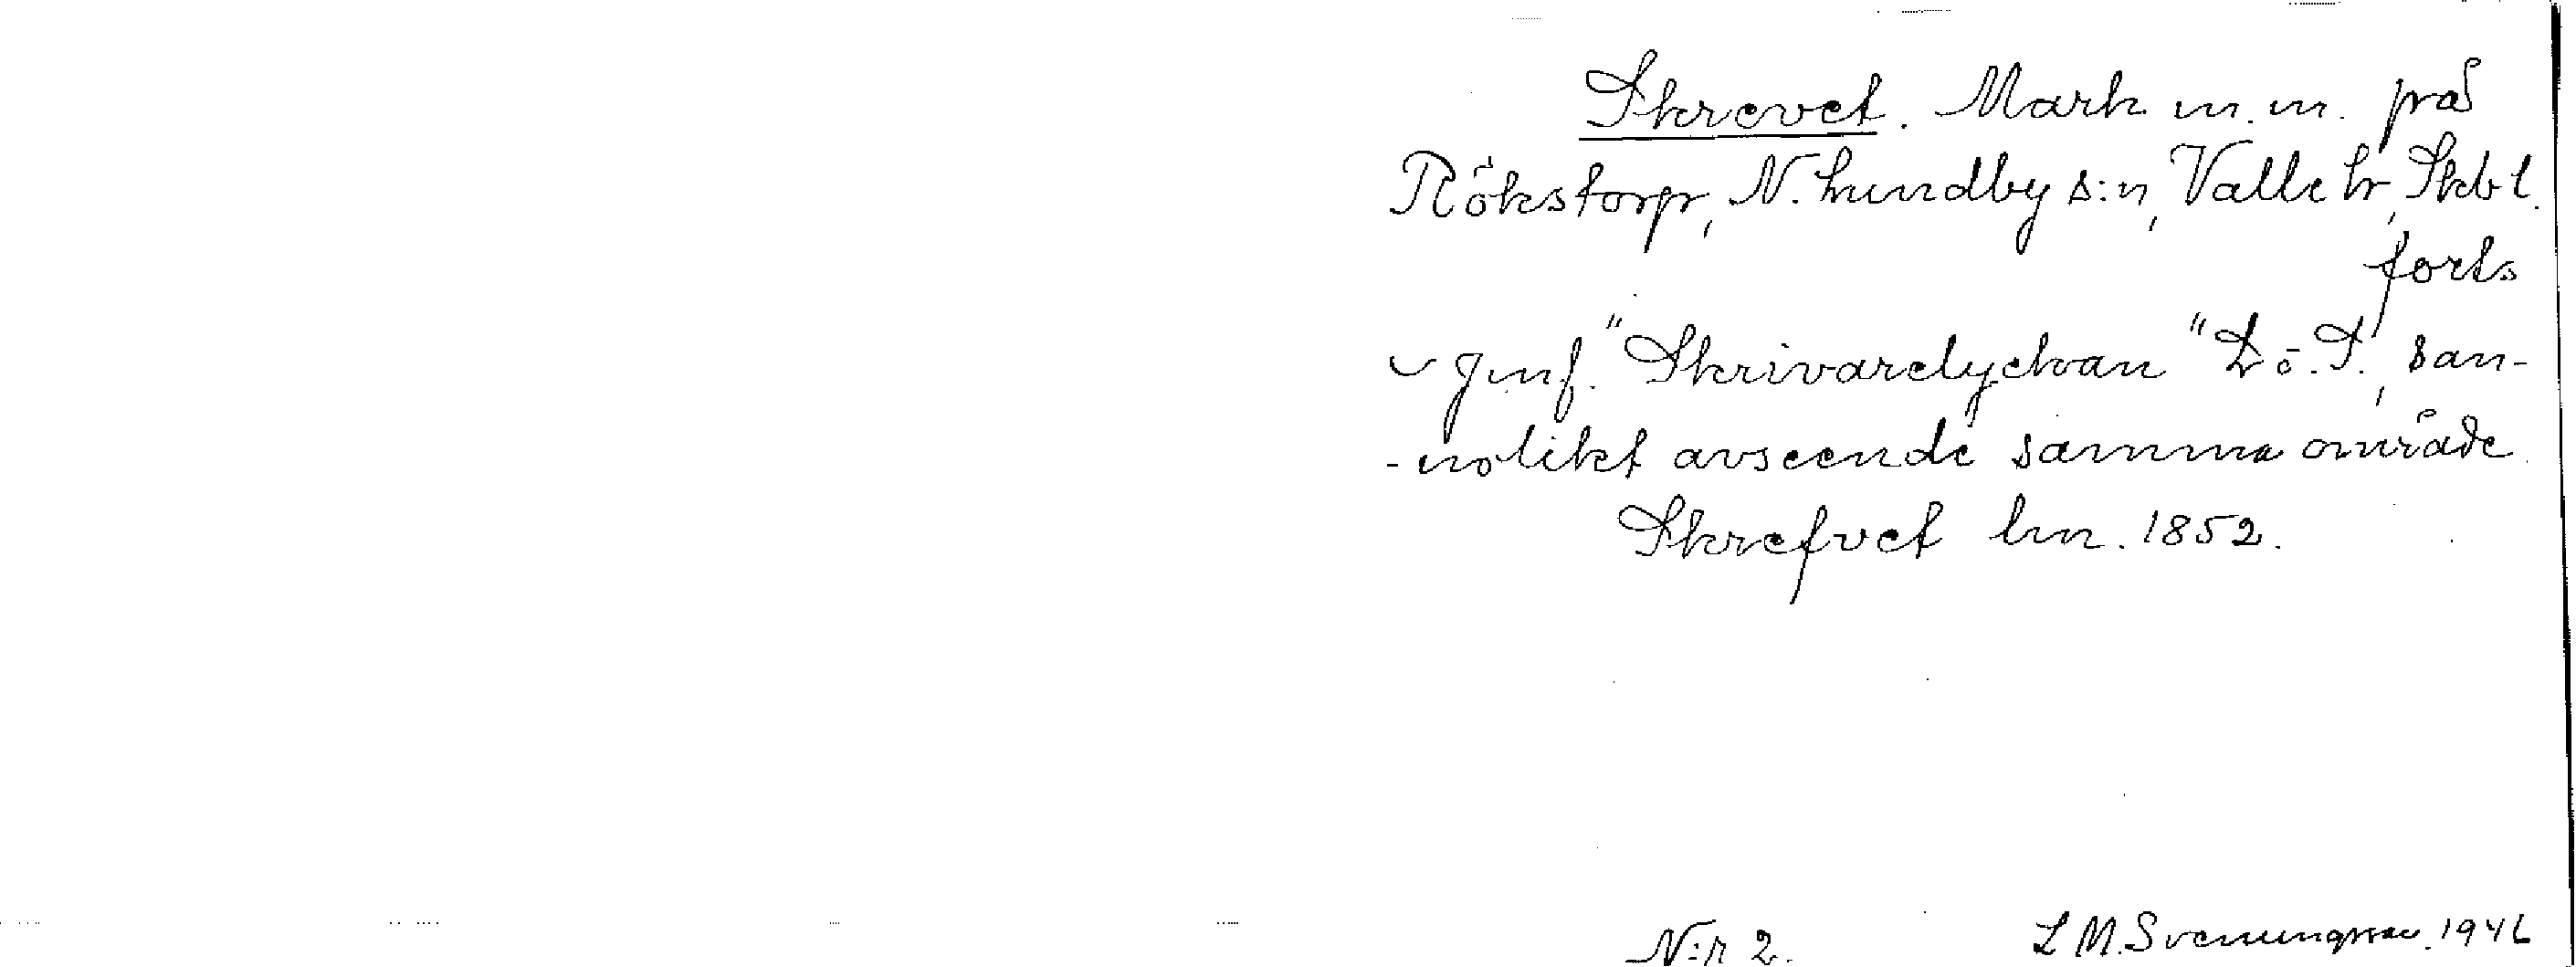 Skrevet. Mark m.m. på
Rökstorp, N. Lundby s:n, Valle hr, Skbl.
forts
Jmf. "Skrivarelyckan" L.ö.S., san-
-nolikt avseende samma område.
Skrefvet hm. 1852.
N:r 2. L M. Svenungsson. 1946